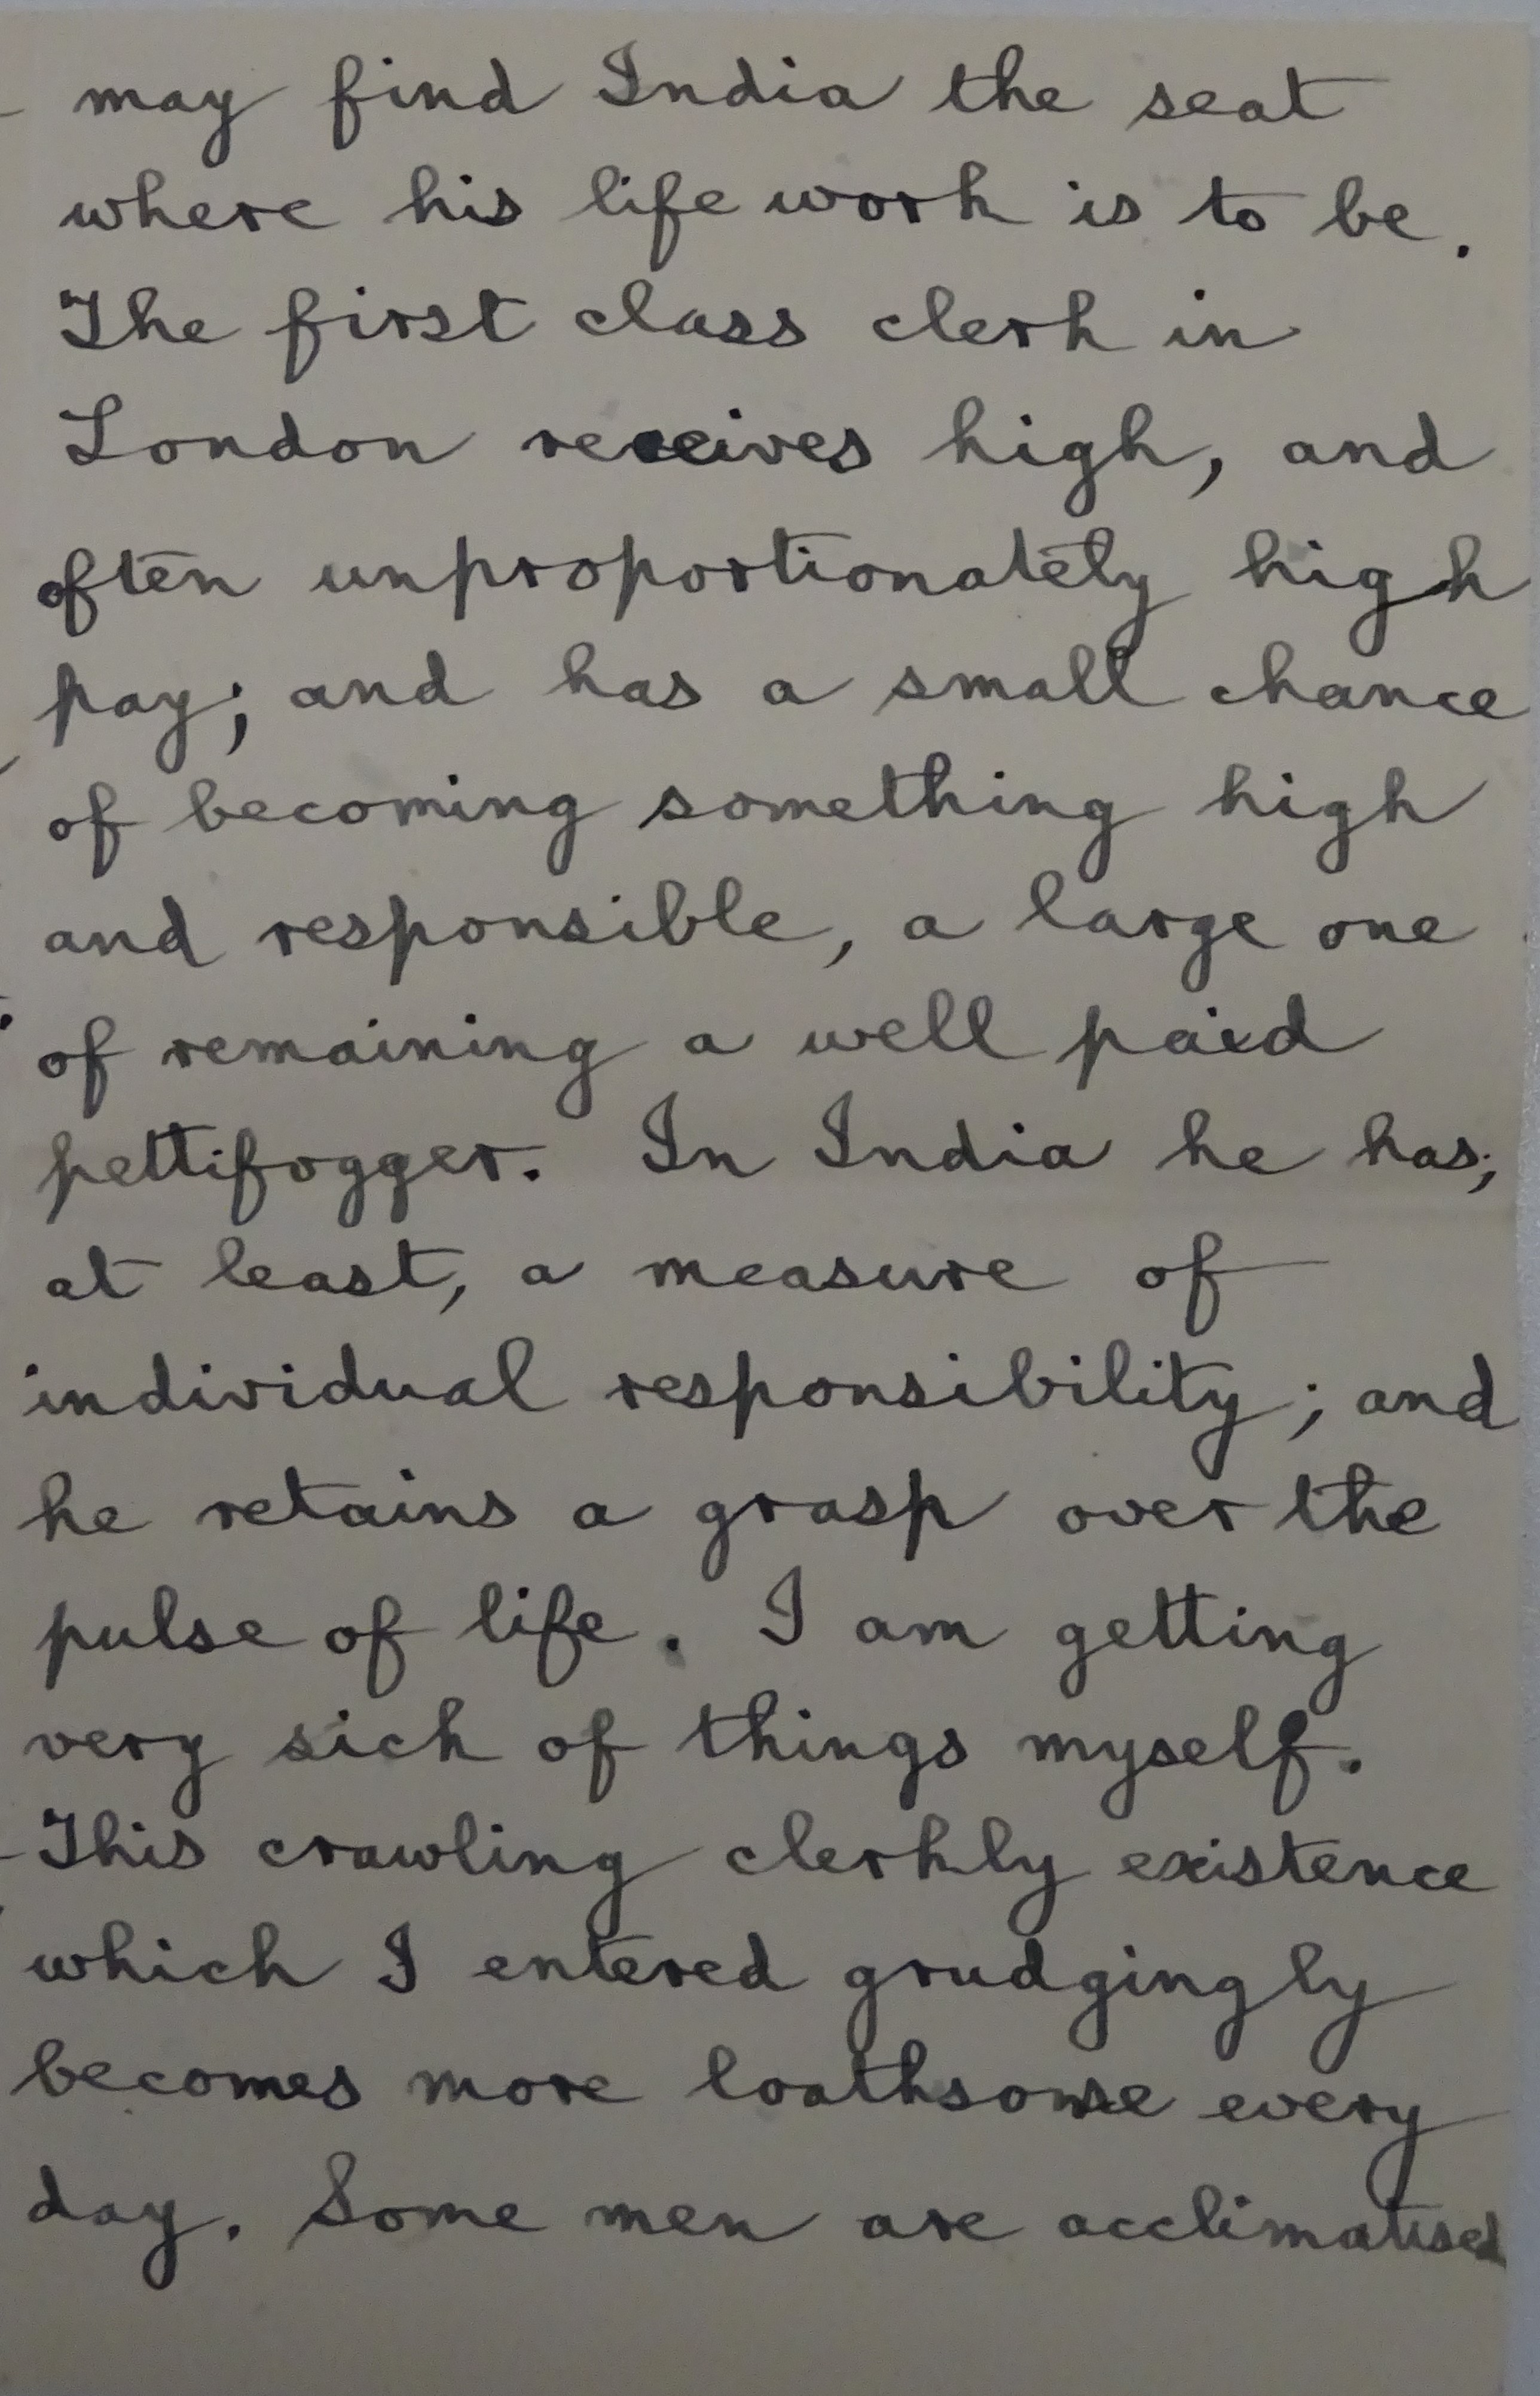 may find India the seat
where his life work is to be.
The first class clerk in
London receives high, and
often unproportionately high
pay; and has a small chance
of becoming something high
and responsible, a large one
of remaining a well paid
pettifogger. In India he has,
at least, a measure of
individual responsibility; and
he retains a grasp over the
pulse of life. I am getting
very sick of things myself.
This crawling clerkly existence
which I entered grudgingly
becomes more loathsome every
day. Some men are acclimatised